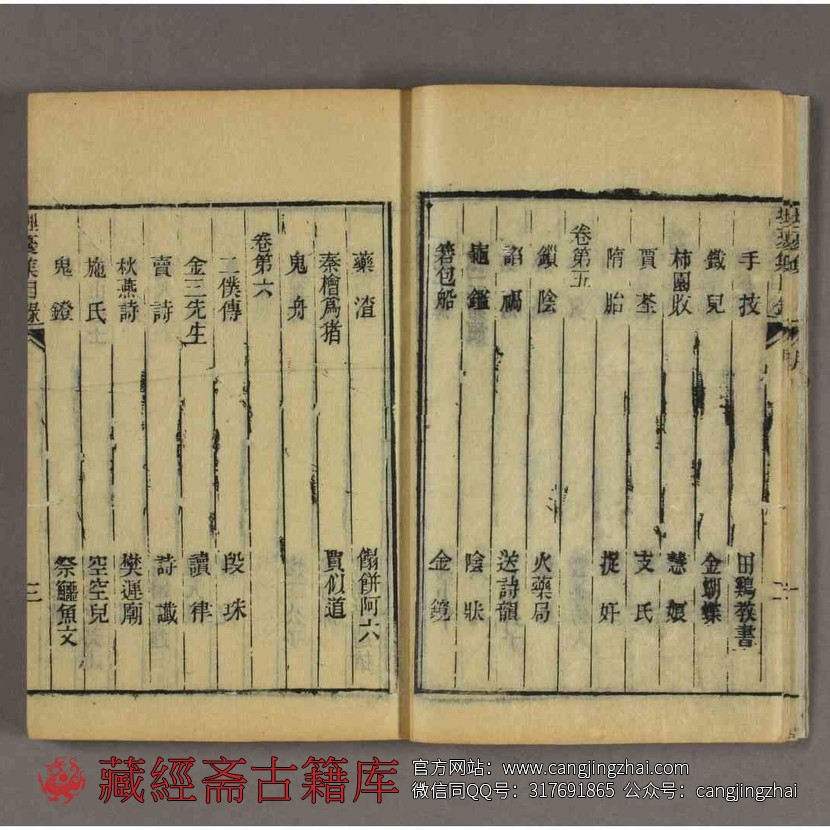 手技　田鷄教書
鐵兒　金蝴蝶
柿園敗　慧娘
賈荃　支氏
隋胎　捉奸
卷第五
鎖陰　火藥局
諂禍　送詩韻
龜鑑　陰狀
箬包船　金鏡
藥渣　餶餅阿六
秦檜爲猪　賈似道
鬼舟
卷第六
二僕傳　段珠
金三先生　讀律
賣詩　詩讖
秋燕詩　樊遲廟
施氏　空空兒
鬼鐙　祭鱷魚文
三
藏經斋古籍库
官方网站：www.cangjingzhai.com
微信同QQ号：317691865 公众号：cangjingzhai